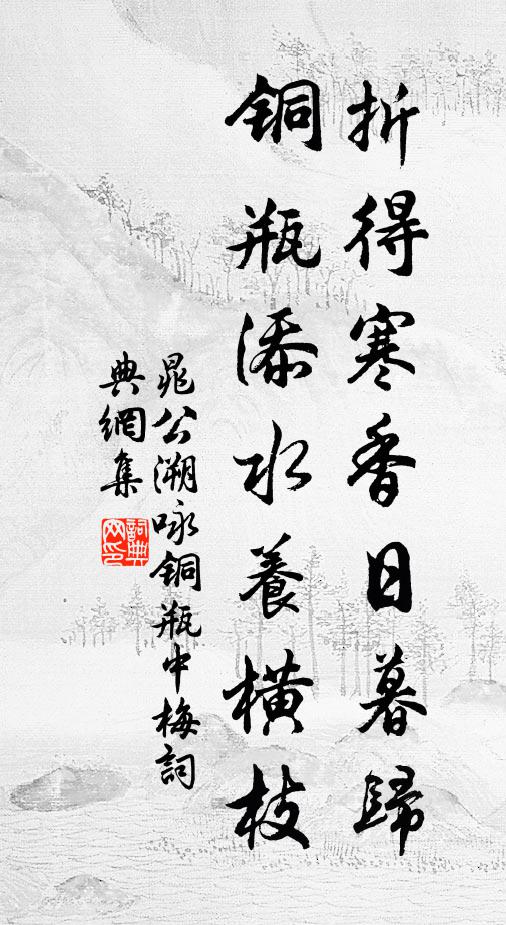 折得寒香日暮歸
銅瓶添水養橫枝
晁公溯咏銅瓶中梅詞
典網集
詞典